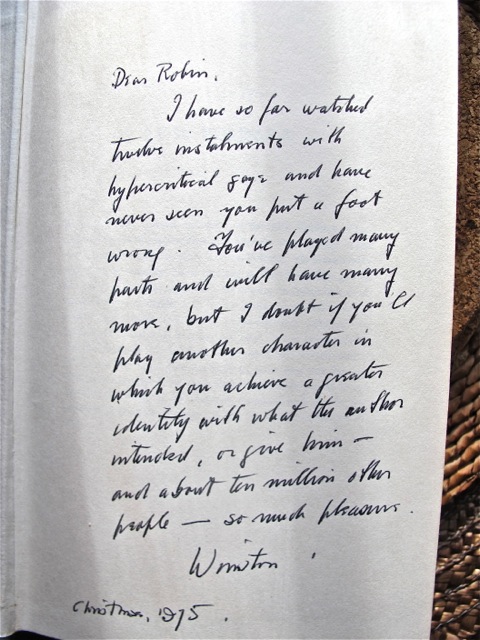 Dear Robin,
I have so far watched
twelve instalments with
hypercritical gaze and have
never seen you put a foot
wrong. You've played many
parts and will have many
more, but I doubt if you'll
play another character in
which you achieve a greater
identity with what the author
intended, or give him —
and about ten million other
people — so much pleasure.
Winston
Christmas, 1975.